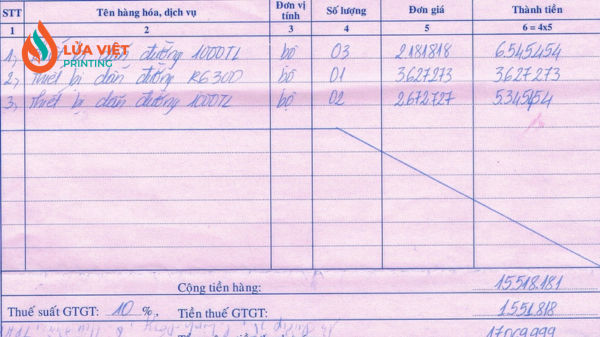 STT Tên hàng hóa, dịch vụ Đơn vị tính Số lượng Đơn giá Thành tiền
1 2 3 4 5 6 = 4x5
LỬA VIỆT
PRINTING
1, bị dẫn đường 1000TL bộ 03 2181818 6.545.454
2, Thiết bị dẫn đường RG300 bộ 01 3627273 3627273
3, Thiết bị dẫn đường 1000TL bộ 02 2.672.727 5.345.454
Cộng tiền hàng: 15.518.181
Thuế suất GTGT: 10 %, Tiền thuế GTGT: 1.551.818
17.069.999